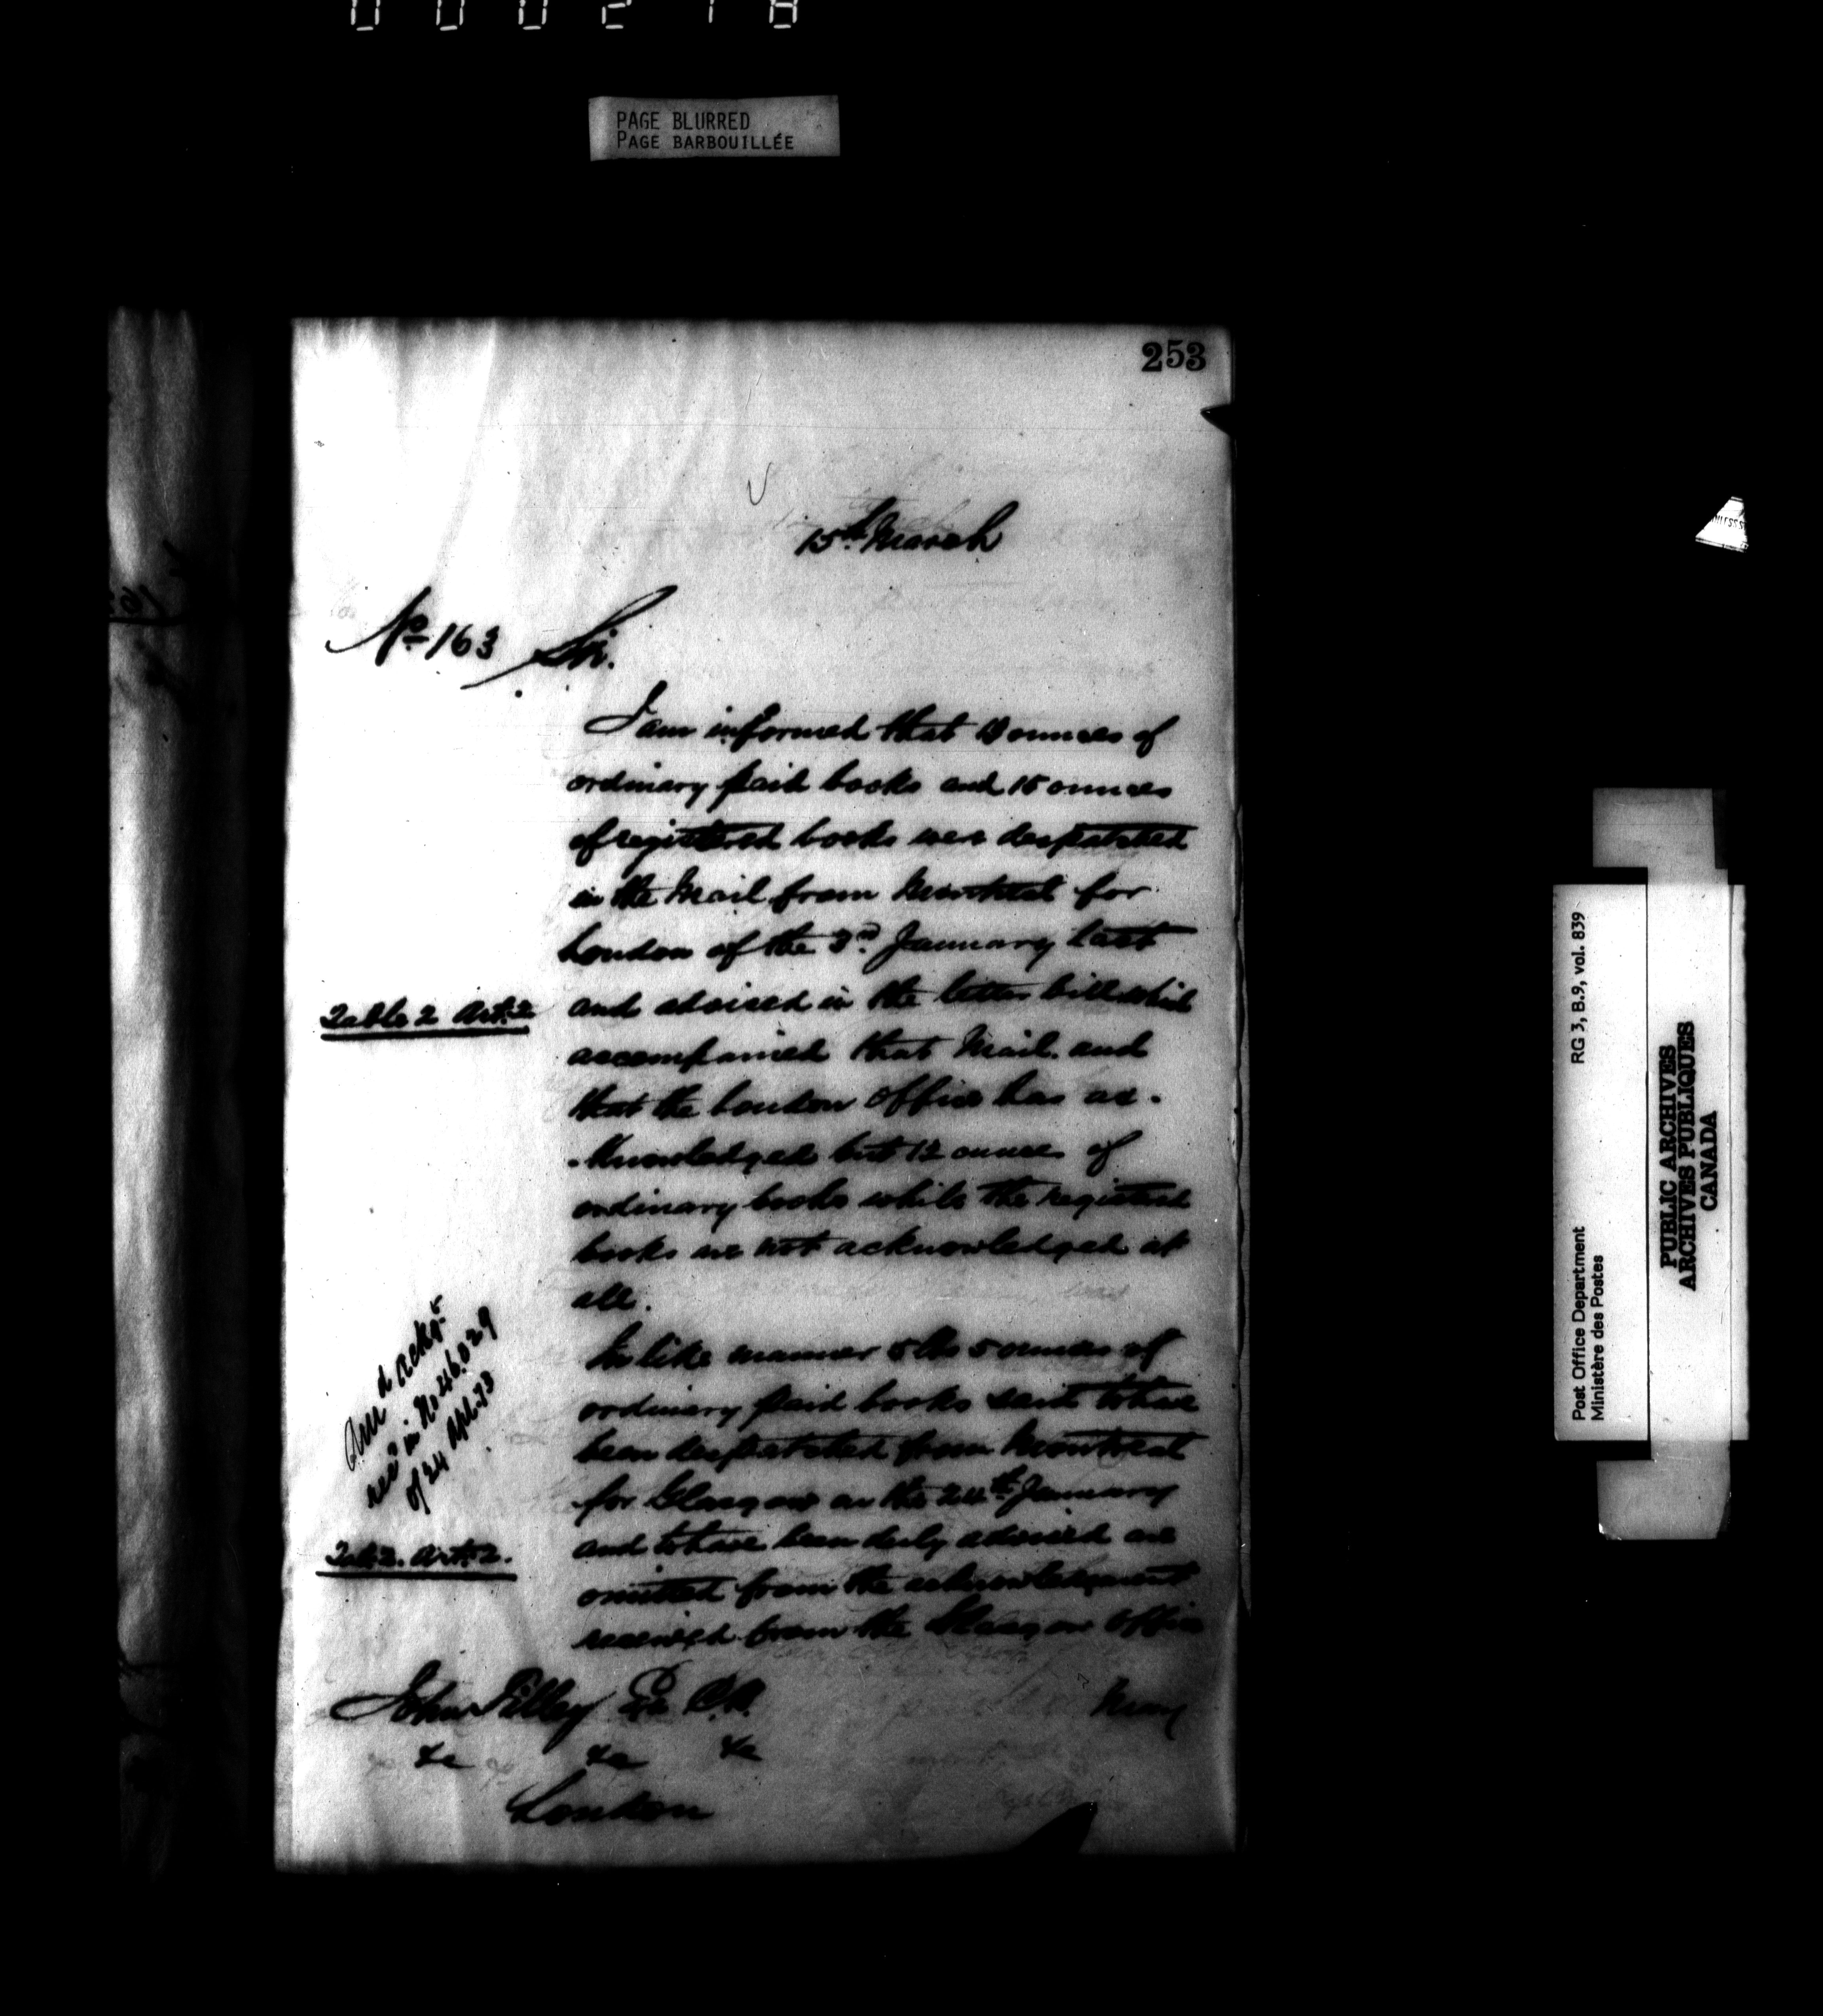 PAGE BLURRED
PAGE BARBOUILLÉE
253
15th March
No 163 Sir.
I am informed that ounces of
ordinary paid books and 15 ounces
of registered books were despatched
in the Mail from Montreal for
London of the 3rd January last
Table 2 Art. 2
and advised in the letter bill which
accompanied that Mail and
that the London Office has ac-
-knowledged but 12 ounces of
ordinary books while the registered
books are not acknowledged at
all.
In like manner 5 lbs 5 ounces of
ordinary paid books said to have
been despatched from Montreal
for Glasgow on the 24th January
and to have been duly advised are
omitted from the acknowledgment
received from the Glasgow Office
recd in No 46.029
of 24 Apl. 73
Tab. 2. Art. 2.
John Tilley Esq C.B.
&c &c &c
London
Post Office Department
Ministère des Postes
RG 3, B.9, vol. 839
PUBLIC ARCHIVES
ARCHIVES PUBLIQUES
CANADA